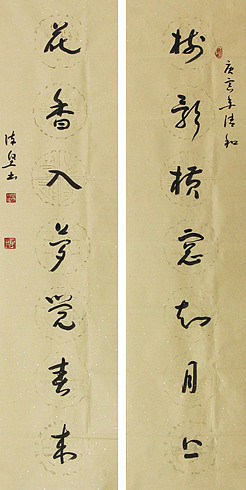 庚寅年清和
樹影橫窗知月上
花香入夢覺春來